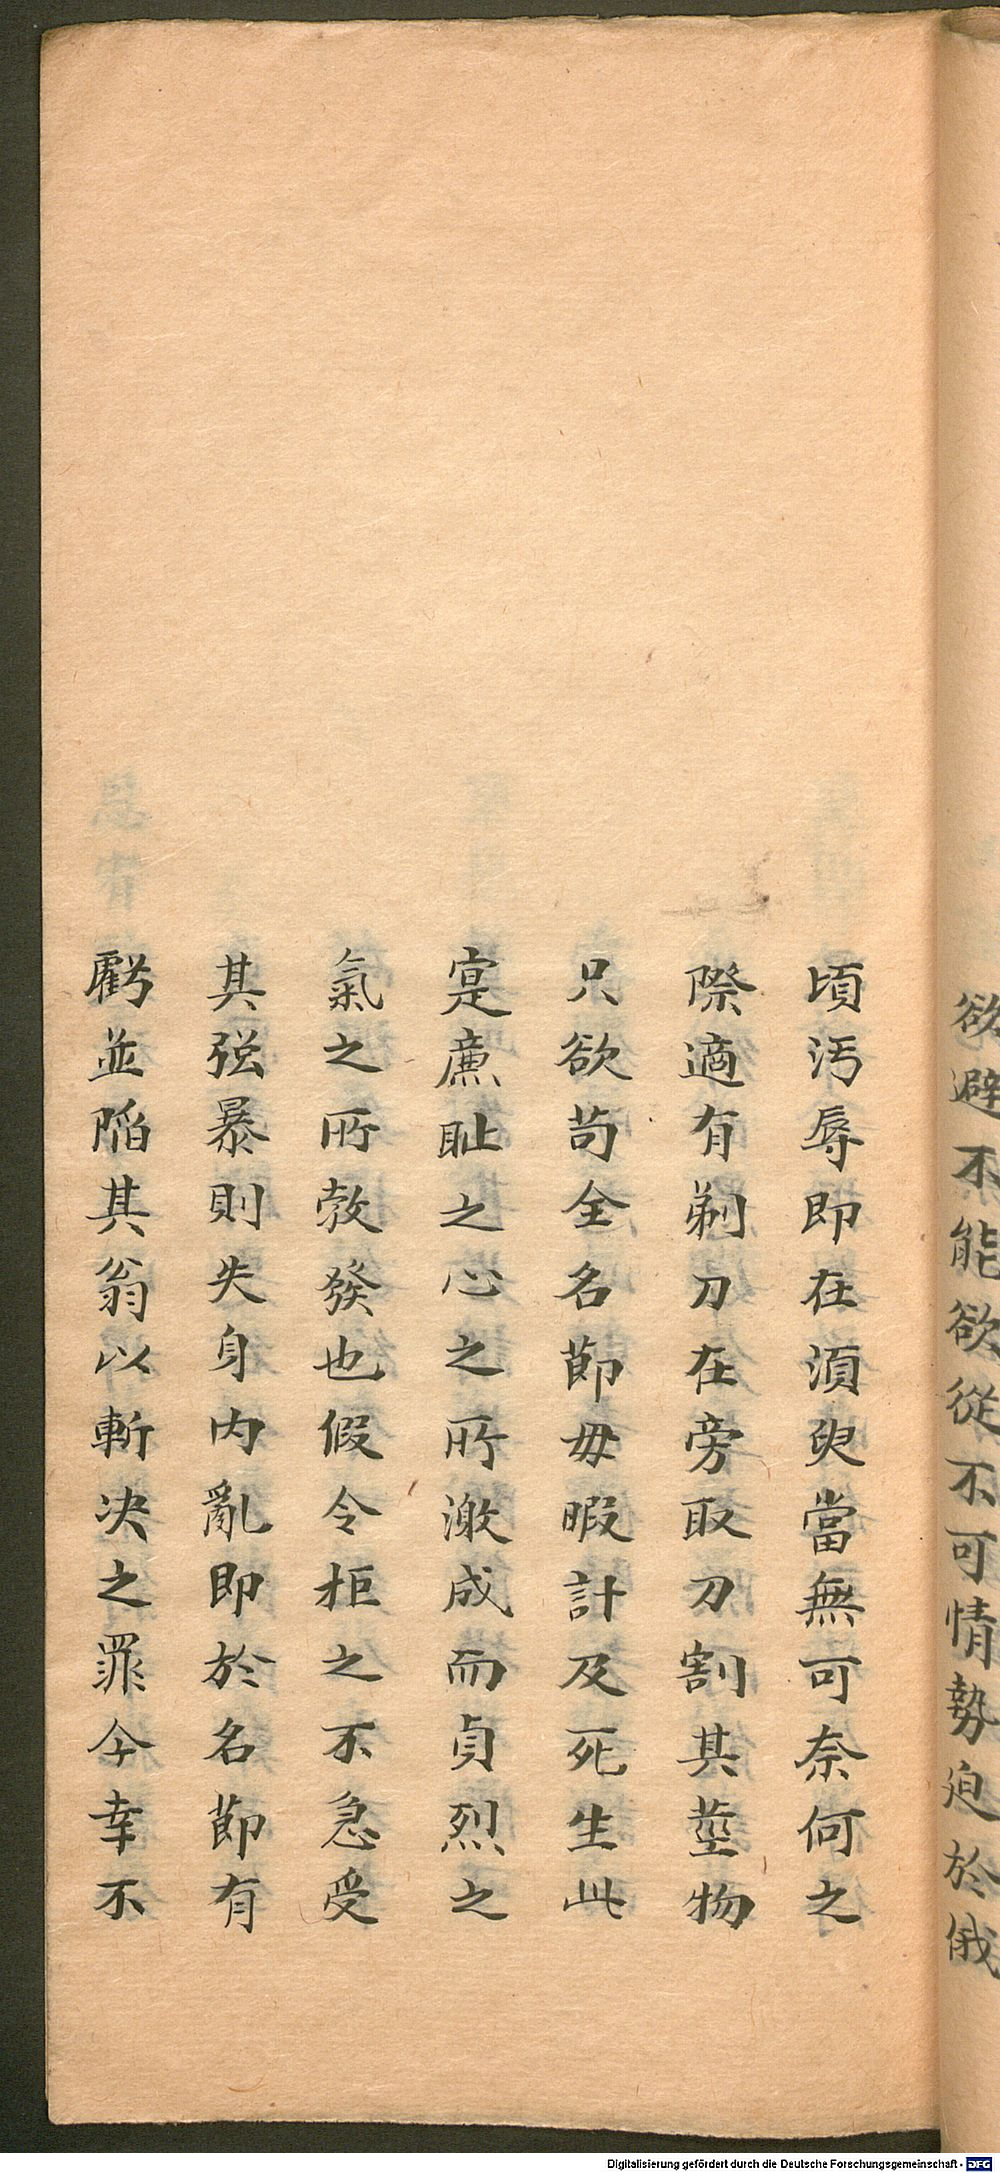 欲避不能欲從不可情勢迫於俄
頃汚辱即在須臾當無可奈何之
際適有剃刀在旁取刀割其莖物
只欲苟全名節毋暇計及死生此
寔廉耻之心之所激成而貞烈之
氣之所敦發也假令拒之不急受
其强暴則失身内亂即於名節有
虧並陷其翁以斬决之罪今幸不
Digitalisierung gefördert durch die Deutsche Forschungsgemeinschaft - DFG